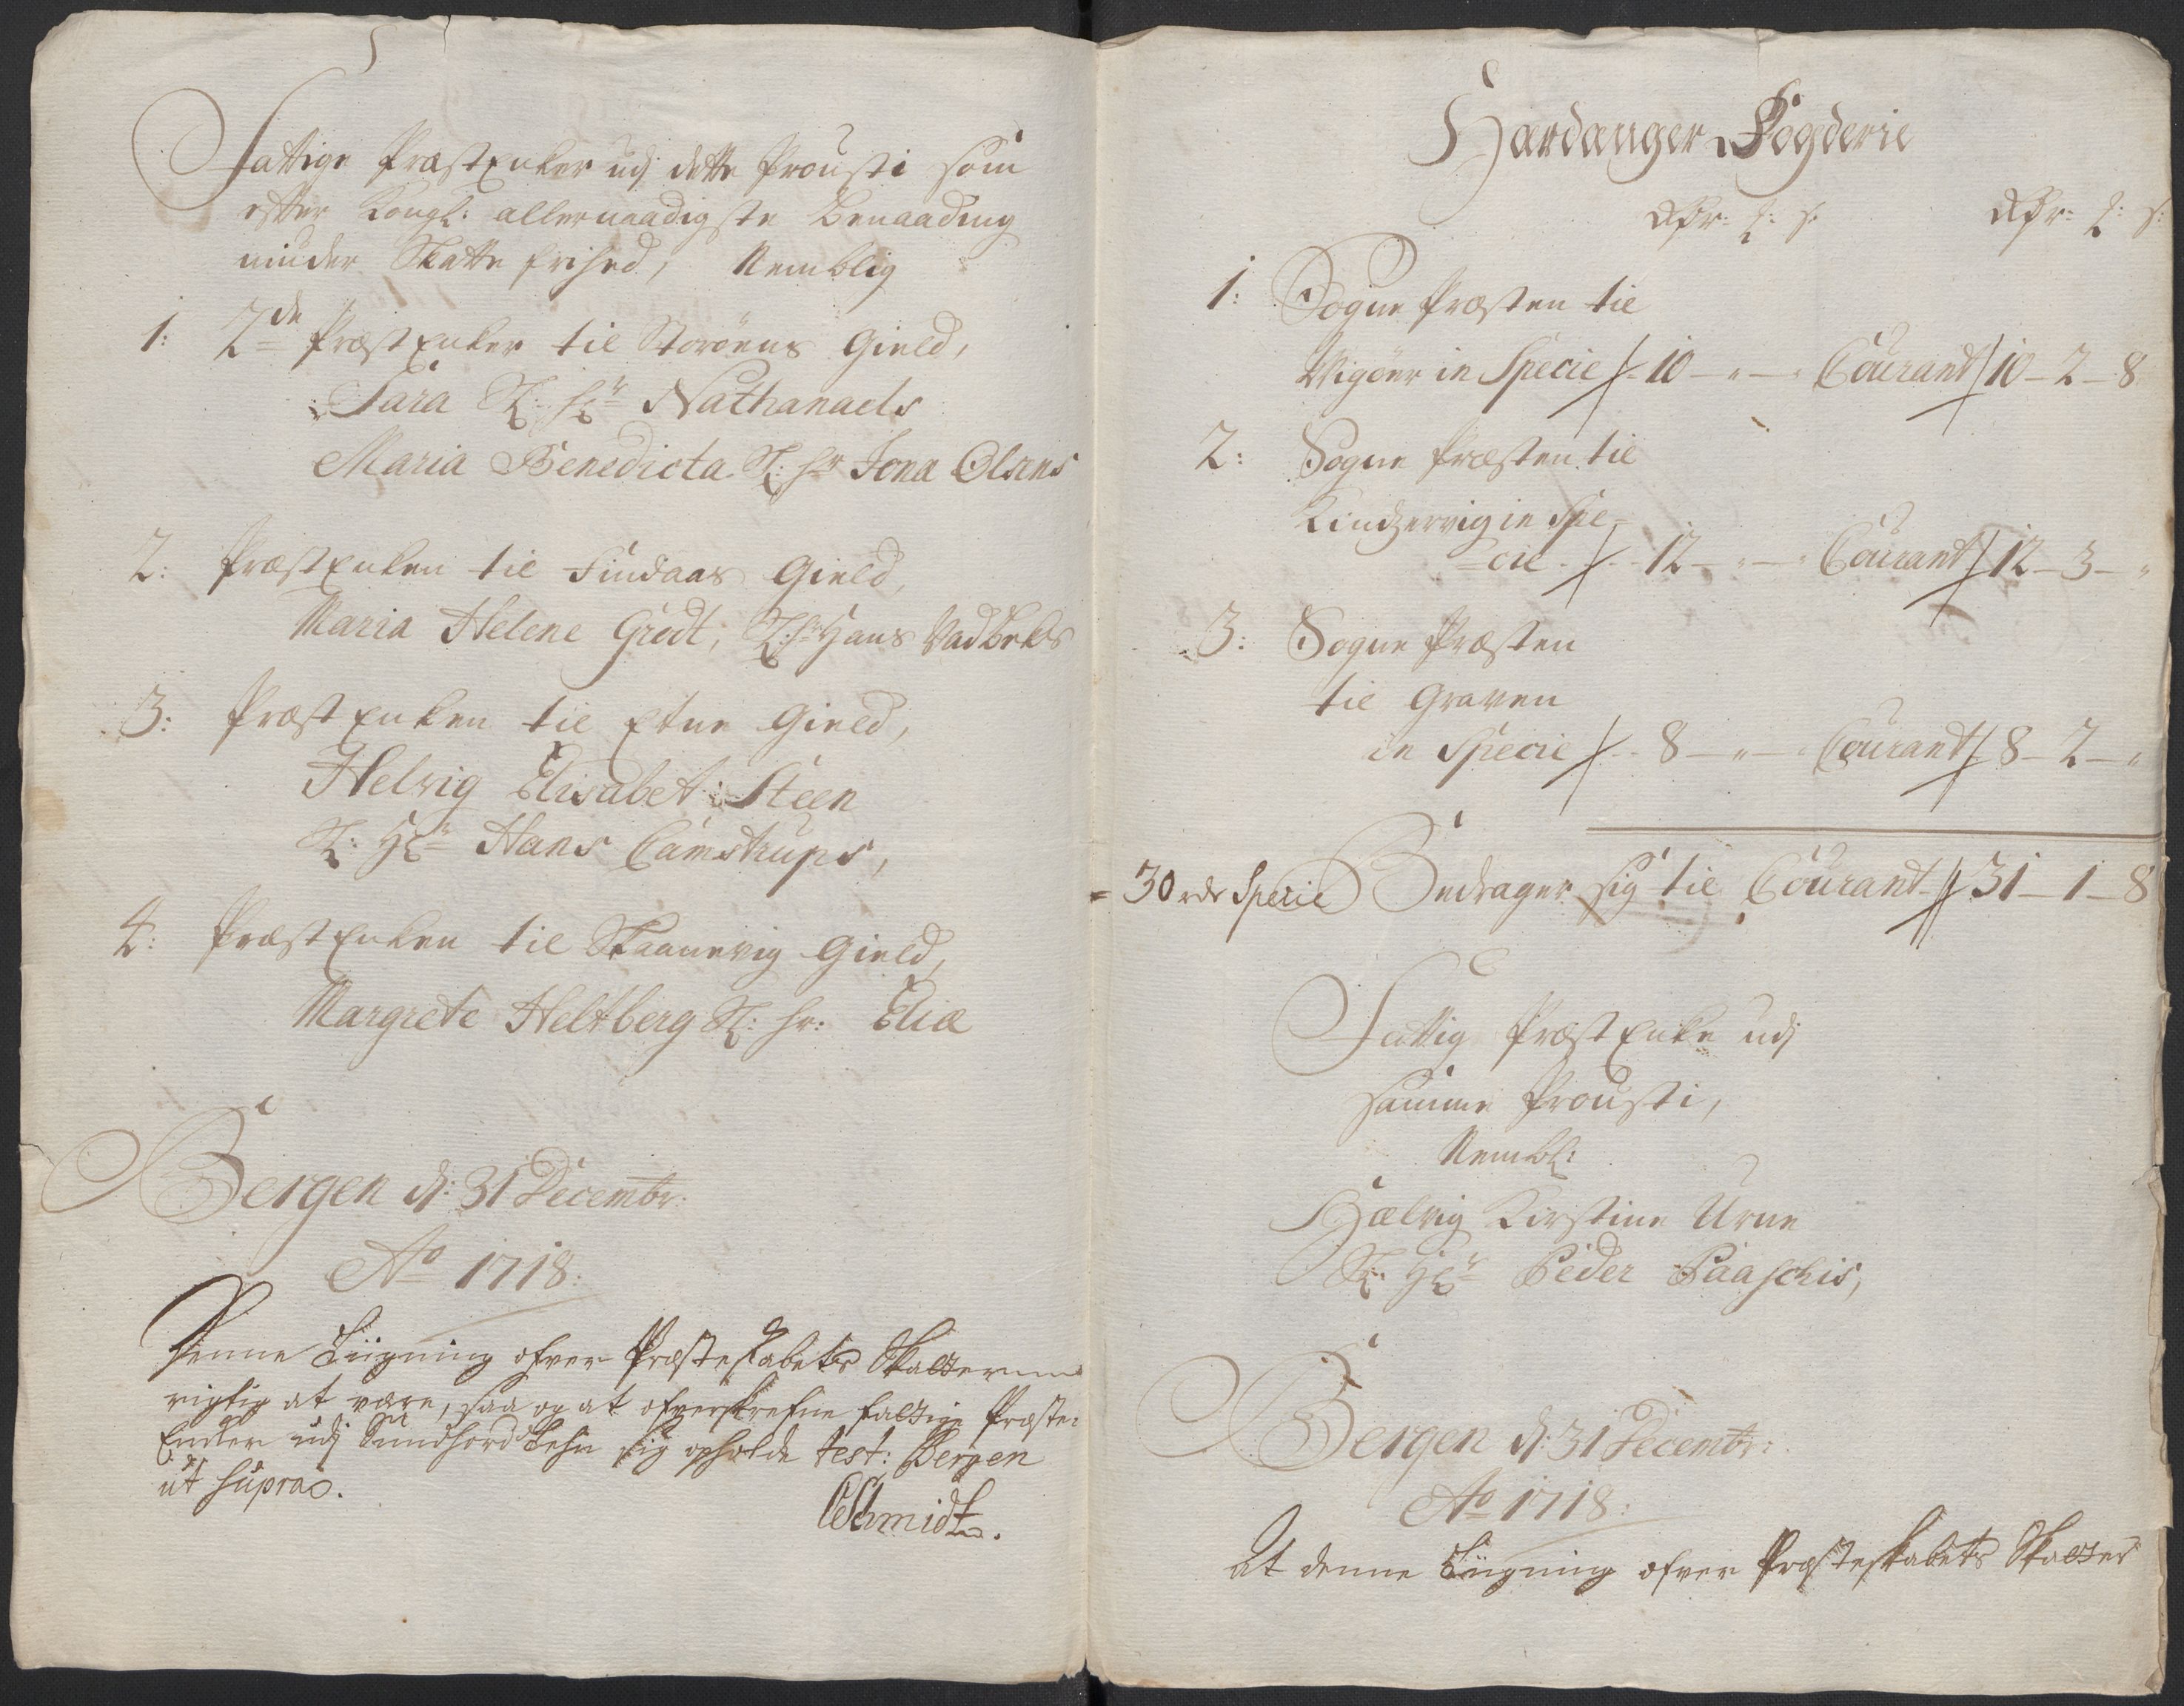 Fattige Præst Enker udj dette Prousti som
efter Kongl: allernaadigste benaading
niuder Skatte frihed, Nemblig
1: 2de Præst Enker til Storøens Gield,
Sara Sl: Hr Nathanaels
Maria Benedicta Sl: Hr Jona Olsens
2: Præst Enken til Findaas Gield,
Maria Helene Grodt, Sl: Hr Hans Vadbeks
3: Præst Enken til Etne Gield,
Helvig Elisabet Steen
Sl: Hr Hans Camstrups,
4: Præst Enken til Skaanevig Gield,
Margrete Heltberg Sl: Hr: Eliæ
Bergen d: 31 Decembr:
Ao 1718:
Denne Liigning ofver Præsteskabets Skatter
rigtig at være, saa og at ofverskrefne fattige Præste-
Encker udj Sundhord Lehn sig opholde test: Bergen
ut supra.
CSchmidt.
Hardanger Fogderie
Rdr: : s: Rdr: : s:
1: Sogne Præsten til
Vigøer in Specie 10 - " - " Courant 10 - 2 - 8
2: Sogne Præsten til
Kindzervig in Spe-
-cie 12 - " - " Courant 12 - 3 - "
3: Sogne Præsten
til Graven
in Specie 8 - " - " Courant 8 - 2 - "
= 30 rdr Specie Bedrager sig til Courant 31 - 1 - 8
Fattig Præst Enke udj
samme Prousti,
Nembl:
Hælvig Kirstine Urne
Sl: Hr Peder Paaschis,
Bergen d: 31 Decembr:
Ao 1718:
At denne Liigning ofver Præsteskabets Skatter